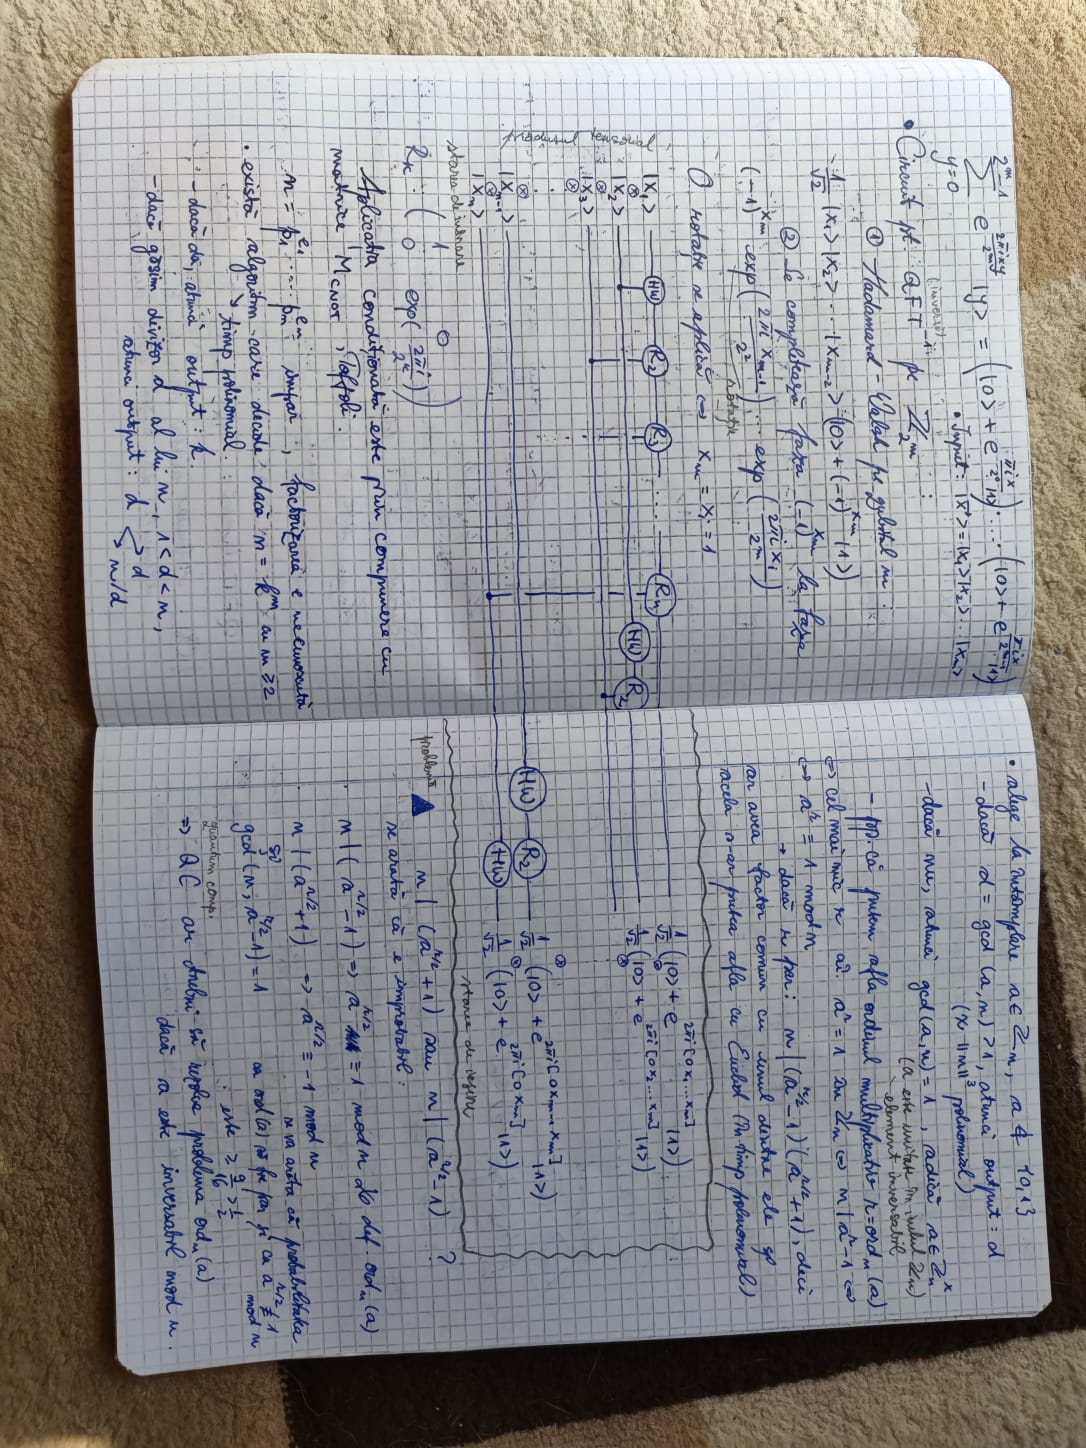 2^m-1
∑ e^(2πixy/2^m) |y> = (|0> + e^(πix/2^0) |1>) ..... (|0> + e^(πix/2^(m-1)) |1>)
y=0
• Input: |x> = |x₁>|x₂> ... |xₘ>
(inversă)
• Circuit pt. QFT⁻¹ pe ℤ_2^m :
① Hadamard - Walsh pe qubitul m :
1/√2 |x₁>|x₂> ... |xₘ₋₂> (|0> + (-1)^xₘ |1>)
② Se completează faza (-1)^xₘ la faza
(-1)^xₘ exp(2πi xₘ₋₁/2²) ... exp(2πi x₁/2^m)
rotație
O rotație se aplică ⇔ xₘ = xᵢ = 1
produsul tensorial
|x₁> HW R₂ R₃ ..... Rₙ
⊗
|x₂> HW R₂
⊗
|x₃>
⊗
⊗
|xₙ₋₁>
⊗
|xₙ>
starea de intrare
R_k : ( 1 0
0 exp(2πi/2^k) )
Aplicația condiționată este prin compunere cu
matrice M_CNOT , Toffoli.
n = p₁^e₁ ..... pₘ^eₘ impar , factorizarea e necunoscută
• există algoritm care decide dacă n = k^m cu m ≥ 2
↘ timp polinomial.
- dacă da, atunci output : k.
- dacă găsim divizor d al lui n, 1 < d < n,
atunci output : d < d
n/d
• alege la întâmplare a ∈ ℤₙ, a ∉ {0,1}
- dacă d = gcd (a,n) > 1, atunci output : d
polinomial)
- dacă nu, atunci gcd(a,n) = 1 , adică a ∈ ℤₙ^x
(a este unitate în inelul ℤₙ)
element inversabil
- pp. că putem afla ordinul multiplicativ r = ordₙ(a)
⇔ cel mai mic r aî. a^r = 1 în ℤₙ ⇔ n | a^r - 1 ⇔
⇔ a^r ≡ 1 mod n
→ dacă r par : n | (a^(r/2) - 1)(a^(r/2) + 1), deci
ar avea factor comun cu unul dintre ele și
acela s-ar putea afla cu Euclid (în timp polinomial)
1/√2 (|0> + e^(2πi[0 x₁...xₘ]) |1>)
⊗
1/√2 (|0> + e^(2πi[0 x₂...xₘ]) |1>)
⊗
⊗
HW R₂ 1/√2 (|0> + e^(2πi[0 xₘ₋₁ xₘ]) |1>)
⊗
HW 1/√2 (|0> + e^(2πi[0 xₘ]) |1>)
starea de ieșire
problemă ▲ n | (a^(r/2) + 1) sau n | (a^(r/2) - 1) ?
se arată că e improbabil :
• n | (a^(r/2) - 1) ⇒ a^(r/2) ≡ 1 mod n def. ordₙ(a)
• n | (a^(r/2) + 1) ⇒ a^(r/2) ≡ -1 mod n
și
se va arăta că probabilitatea
gcd(n, a^(r/2) - 1) = 1
ca ord(a) să fie par și ca a^(r/2) ≢ 1
mod n
este ≥ 9/16 > 1/2
quantum comp.
⇒ QC ar trebui să rezolve problema ordₙ(a)
dacă a este inversabil mod n.